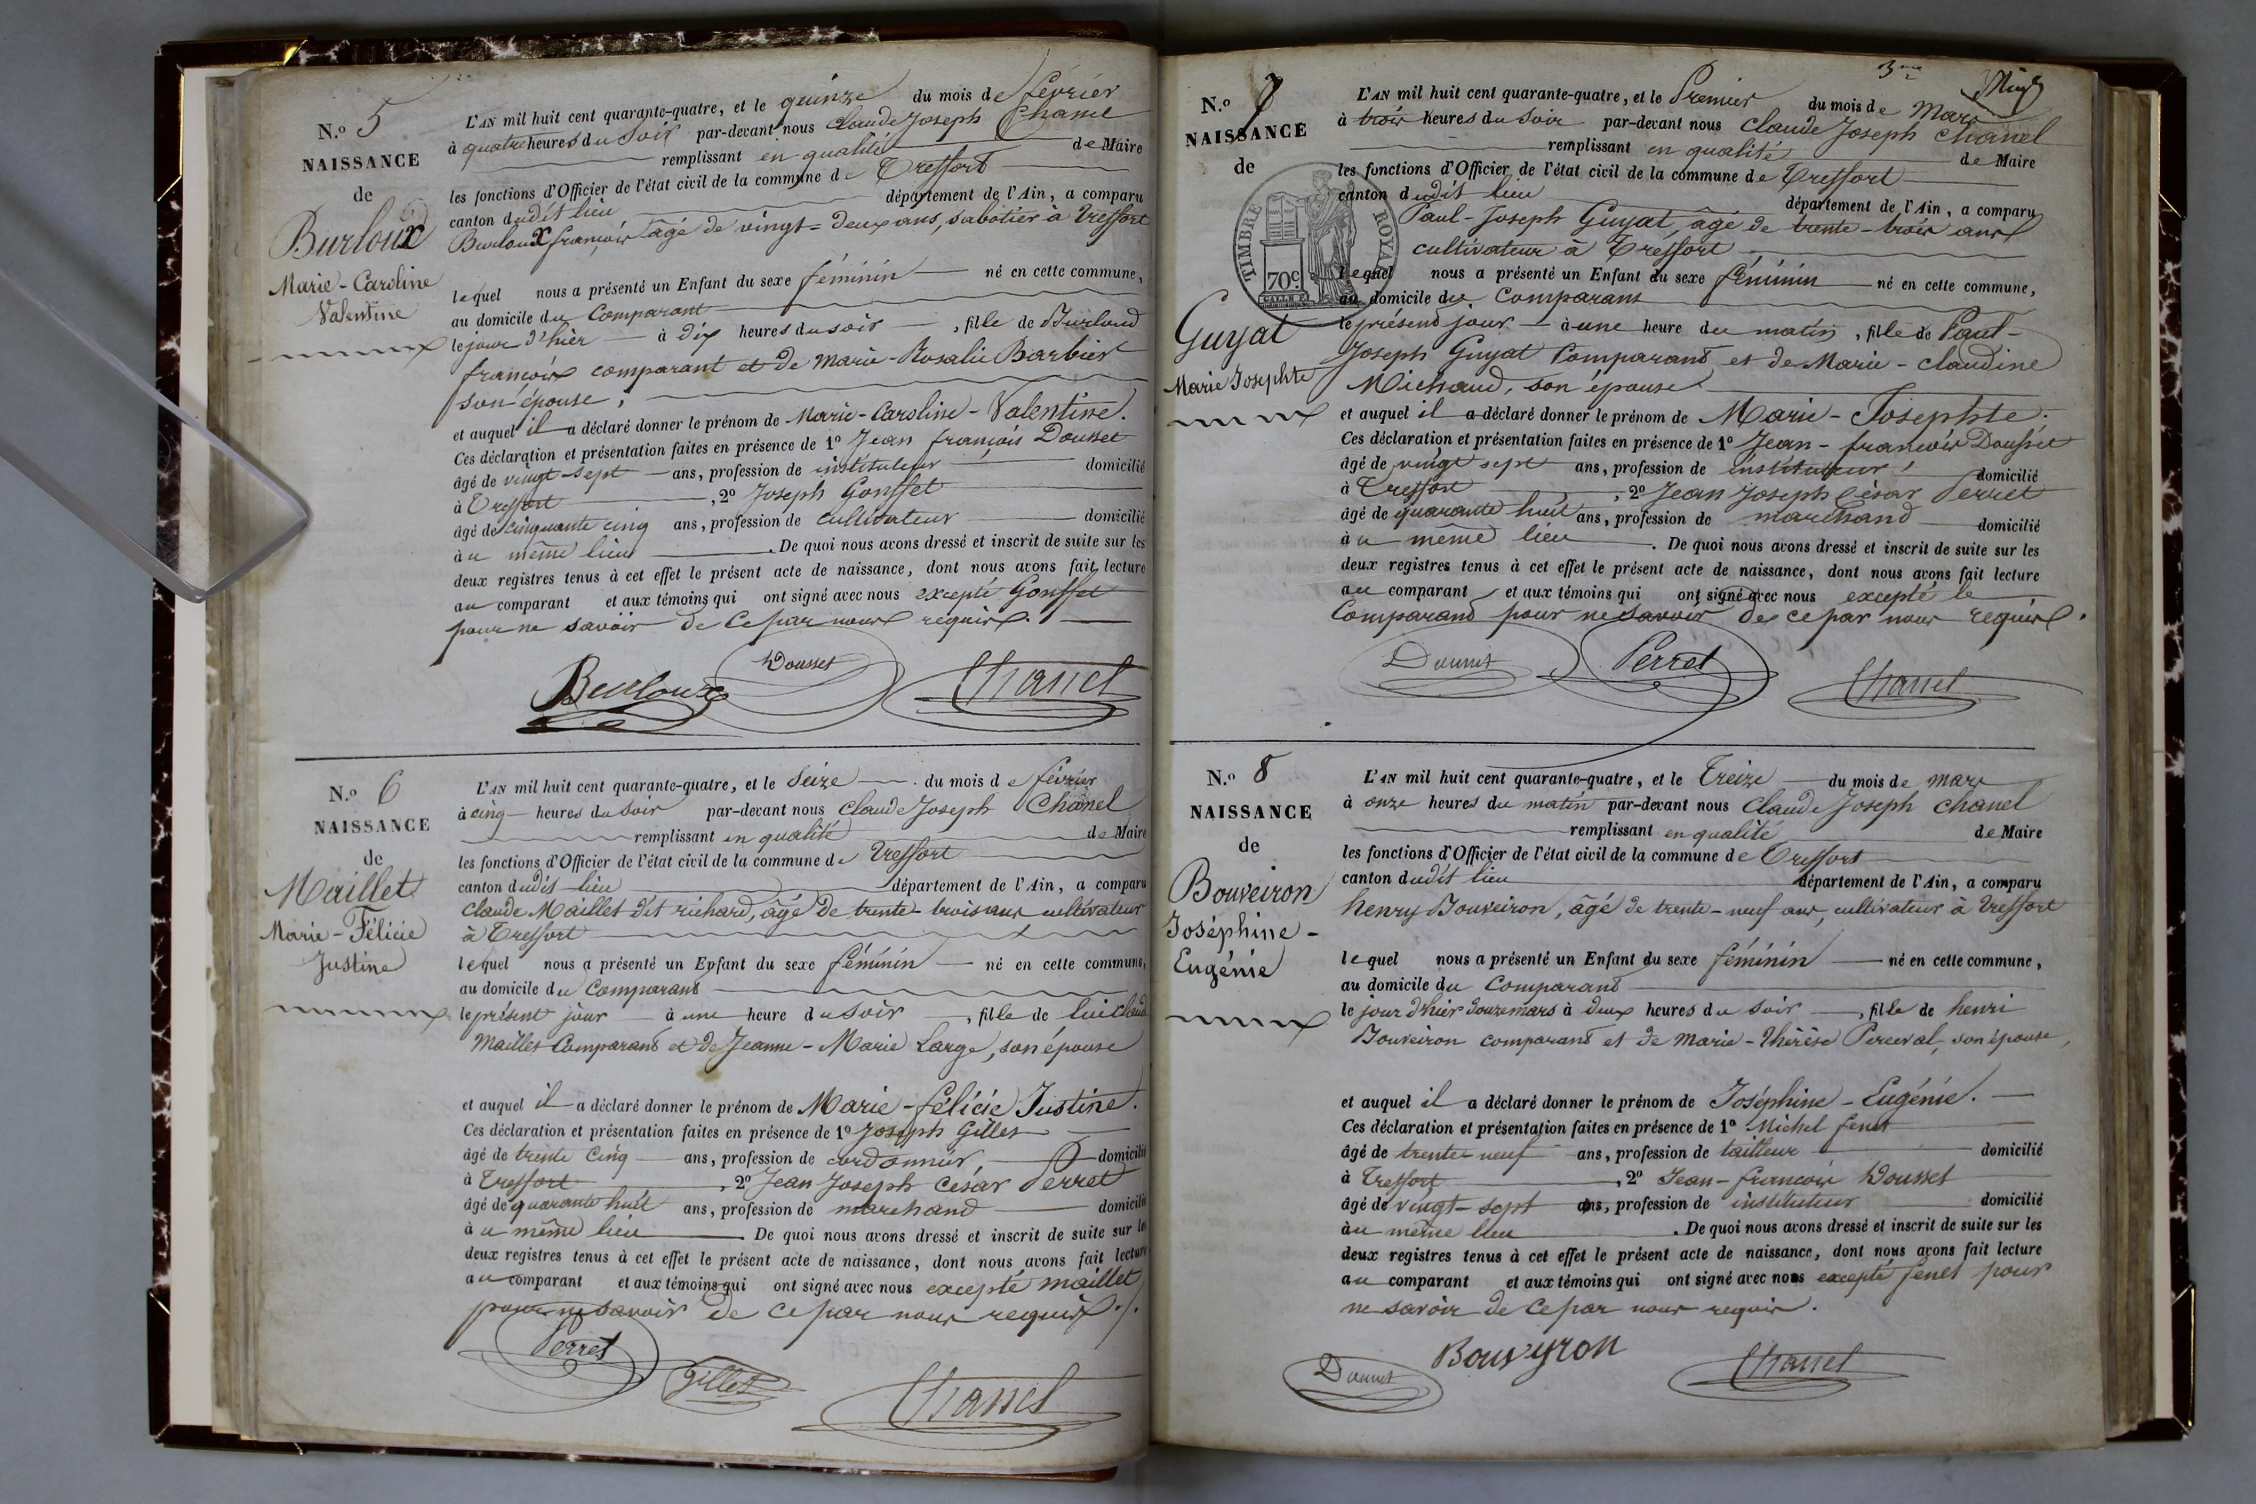 N.º 5
NAISSANCE
de
Burloux
Marie-Caroline
Valentine
L'AN mil huit cent quarante-quatre, et le quinze du mois de février
à quatre heures du soir par-devant nous Claude Joseph Chanel
remplissant en qualité de Maire
les fonctions d'Officier de l'état civil de la commune de Treffort
canton dudit lieu département de l'Ain, a comparu
Burloux françois âgé de vingt-deux ans, sabotier à Treffort
lequel nous a présenté un Enfant du sexe féminin né en cette commune,
au domicile du Comparant
le jour d'hier à dix heures du soir, fille de Burloud
françois comparant et de Marie-Rosalie Barbier
son épouse,
et auquel il a déclaré donner le prénom de Marie-Caroline-Valentine.
Ces déclaration et présentation faites en présence de 1º Jean françois Dousset
âgé de vingt-sept ans, profession de instituteur domicilié
à Treffort, 2º Joseph Gonffet
âgé de cinquante cinq ans, profession de cultivateur domicilié
à u même lieu. De quoi nous avons dressé et inscrit de suite sur les
deux registres tenus à cet effet le présent acte de naissance, dont nous avons fait lecture
au comparant et aux témoins qui ont signé avec nous excepté Gonffet
pour ne savoir de ce par nous requis.
Burloux Dousset Chanel
N.º 6
NAISSANCE
de
Maillet
Marie-Félicie
Justine
L'AN mil huit cent quarante-quatre, et le Seize du mois de février
à cinq heures du soir par-devant nous Claude Joseph Chanel
remplissant en qualité de Maire
les fonctions d'Officier de l'état civil de la commune de Treffort
canton dudit lieu département de l'Ain, a comparu
Claude Maillet dit richard, âgé de trente-trois ans cultivateur
à Treffort
lequel nous a présenté un Enfant du sexe féminin né en cette commune,
au domicile du Comparant
le présent jour à une heure du soir, fille de lui Claude
Maillet Comparant et de Jeanne-Marie Large, son épouse
et auquel il a déclaré donner le prénom de Marie-félicie Justine.
Ces déclaration et présentation faites en présence de 1º Joseph Gilles
âgé de trente cinq ans, profession de cordonnier, domicilié
à Treffort, 2º Jean Joseph César Perret
âgé de quarante huit ans, profession de marchand domicilié
à u même lieu. De quoi nous avons dressé et inscrit de suite sur les
deux registres tenus à cet effet le présent acte de naissance, dont nous avons fait lecture
au comparant et aux témoins qui ont signé avec nous excepté maillet
pour ne savoir de ce par nous requis./.
Perret Gillet Chanel
3me
N.º 7
NAISSANCE
de
TIMBRE ROYAL
70c
Guyat
Marie Josephte
L'AN mil huit cent quarante-quatre, et le Premier du mois de Mars
à trois heures du Soir par-devant nous Claude Joseph Chanel
remplissant en qualité de Maire
les fonctions d'Officier de l'état civil de la commune de Treffort
canton dudit lieu département de l'Ain, a comparu
Paul-Joseph Guyat, âgé de trente-trois ans
cultivateur à Treffort
lequel nous a présenté un Enfant du sexe féminin né en cette commune,
au domicile du Comparant
le présent jour à une heure du matin, fille de Paul-
Joseph Guyat Comparant et de Marie-Claudine
Michaud, son épouse
et auquel il a déclaré donner le prénom de Marie-Josephte.
Ces déclaration et présentation faites en présence de 1º Jean-françois Dousset
âgé de vingt sept ans, profession de instituteur, domicilié
à Treffort, 2º Jean Joseph César Perret
âgé de quarante huit ans, profession de marchand domicilié
à u même lieu. De quoi nous avons dressé et inscrit de suite sur les
deux registres tenus à cet effet le présent acte de naissance, dont nous avons fait lecture
au comparant et aux témoins qui ont signé avec nous excepté le
Comparant pour ne savoir de ce par nous requis.
Dousset Perret Chanel
N.º 8
NAISSANCE
de
Bouveiron
Joséphine-
Eugénie
L'AN mil huit cent quarante-quatre, et le Treize du mois de mars
à onze heures du matin par-devant nous Claude Joseph Chanel
remplissant en qualité de Maire
les fonctions d'Officier de l'état civil de la commune de Treffort
canton dudit lieu département de l'Ain, a comparu
henry Bouveiron, âgé de trente-neuf ans, cultivateur à Treffort
lequel nous a présenté un Enfant du sexe féminin né en cette commune,
au domicile du Comparant
le jour d'hier douze mars à deux heures du soir, fille de henri
Bouveiron comparant et de Marie-Thérèse Perceval, son épouse,
et auquel il a déclaré donner le prénom de Joséphine-Eugénie.
Ces déclaration et présentation faites en présence de 1º Michel fenet
âgé de trente neuf ans, profession de tailleur domicilié
à Treffort, 2º Jean-françois Dousset
âgé de vingt-sept ans, profession de instituteur domicilié
à u même lieu. De quoi nous avons dressé et inscrit de suite sur les
deux registres tenus à cet effet le présent acte de naissance, dont nous avons fait lecture
au comparant et aux témoins qui ont signé avec nous excepté fenet pour
ne savoir de ce par nous requis.
Dousset Bouvyron Chanel